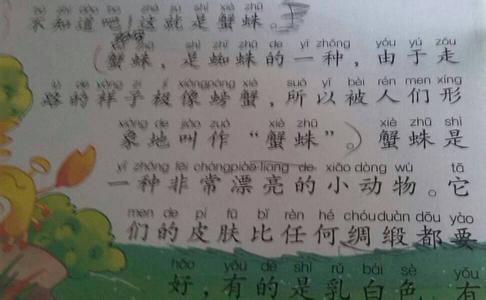 不知道吧！这就是蟹蛛。
xiè zhū shì zhī zhū de yì zhǒng yóu yú zǒu
（蟹蛛，是蜘蛛的一种，由于走
lù de yàng zi jí xiàng páng xiè suǒ yǐ bèi rén men xíng
路的样子极像螃蟹，所以被人们形
xiàng de jiào zuò xiè zhū xiè zhū shì
象地叫作“蟹蛛”。）蟹蛛是
yì zhǒng fēi cháng piào liang de xiǎo dòng wù tā
一种非常漂亮的小动物。它
men de pí fū bǐ rèn hé chóu duàn dōu yào
们的皮肤比任何绸缎都要
hǎo yǒu de shì rǔ bái sè yǒu
好，有的是乳白色，有